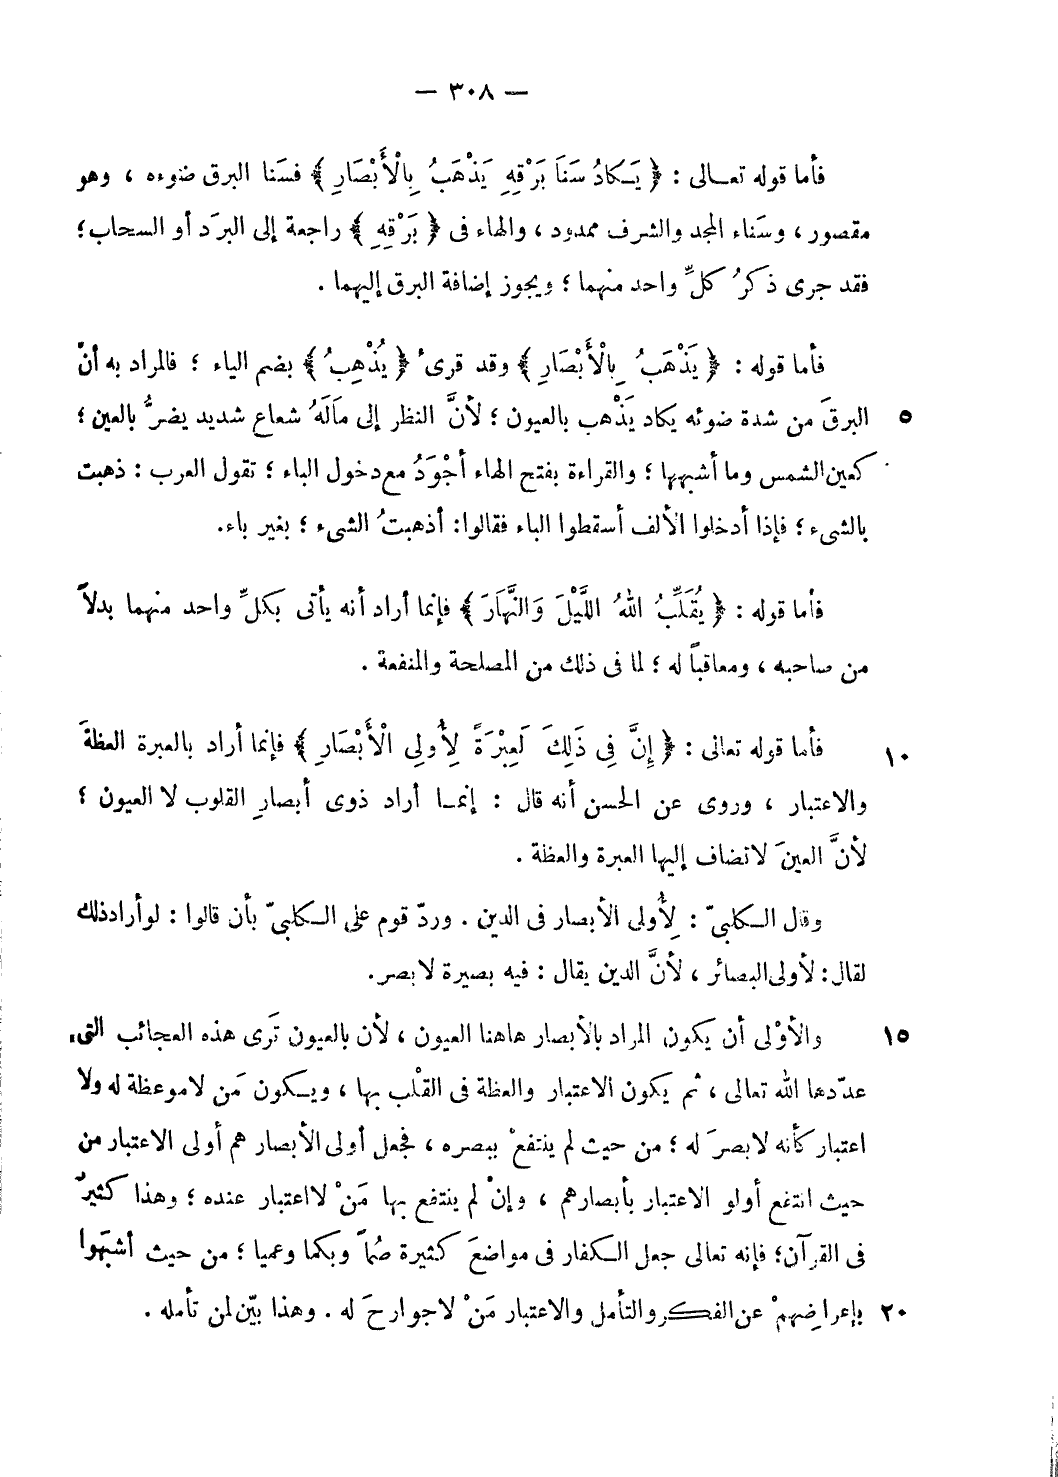 — ٣٠٨ —
فأما قوله تعـالى : ﴿ يَـكَادُ سَنَا بَرْقِهِ يَذْهَبُ بِالْأَبْصَارِ ﴾ فسَنا البرق ضوءه ، وهو
مقصور ، وسَناء المجد والشرف ممدود ، والهاء فى ﴿ بَرْقِهِ ﴾ راجعة إلى البرَد أو السحاب ؛
فقد جرى ذكرُ كلِّ واحد منهما ؛ ويجوز إضافة البرق إليهما .
فأما قوله : ﴿ يَذْهَبُ بِالْأَبْصَارِ ﴾ وقد قرىء ﴿ يُذْهِبُ ﴾ بضم الياء ؛ فالمراد به أنّ
٥ البرقَ من شدة ضوئه يكاد يَذْهب بالعيون ؛ لأنَّ النظر إلى مالَهُ شعاع شديد يضرُّ بالعين ؛
كعين الشمس وما أشبهها ؛ والقراءة بفتح الهاء أجْوَدُ مع دخول الباء ؛ تقول العرب : ذهبت
بالشىء ؛ فإذا أدخلوا الألف أسقطوا الباء فقالوا: أذهبتُ الشىء ؛ بغير باء.
فأما قوله : ﴿ يُقَلِّبُ اللهُ اللَّيْلَ وَالنَّهَارَ ﴾ فإنما أراد أنه يأتى بكلِّ واحد منهما بدلاً
من صاحبه ، ومعاقباً له ؛ لما فى ذلك من المصلحة والمنفعة .
١٠ فأما قوله تعالى : ﴿ إِنَّ فِى ذَلِكَ لَعِبْرَةً لِأُولِى الْأَبْصَارِ ﴾ فإنما أراد بالعبرة العظةَ
والاعتبار ، وروى عن الحسن أنه قال : إنمـا أراد ذوى أبصارِ القلوب لا العيون ؛
لأنَّ العينَ لا تضاف إليها العبرة والعظة .
وقال الـكلبىّ : لِأُولى الأبصار فى الدين . وردّ قوم على الـكلبىّ بأن قالوا : لو أراد ذلك
لقال: لأولى البصائر ، لأنَّ الدين يقال : فيه بصيرة لا بصر.
١٥ والأوْلى أن يكون المراد بالأبصار هاهنا العيون ، لأن بالعيون تَرى هذه العجائب التى
عدّدها الله تعالى ، ثم يكون الاعتبار والعظة فى القلْب بها ، ويـكون مَن لا موعظة له ولا
اعتبار كأنه لا بصرَ له ؛ من حيث لم ينتفعْ ببصره ، فجعل أولى الأبصار هم أولى الاعتبار من
حيث انتفع أولو الاعتبار بأبصارهم ، وإنْ لم ينتفع بها مَنْ لا اعتبار عنده ؛ وهذا كثيرٌ
فى القرآن؛ فإنه تعالى جعل الـكفار فى مواضعَ كثيرة صُمّاً وبكما وعميا ؛ من حيث أشبَهوا
٢٠ بإعراضِهمْ عن الفكر والتأمل والاعتبار مَنْ لا جوارحَ له . وهذا بيّن لمن تأمله .